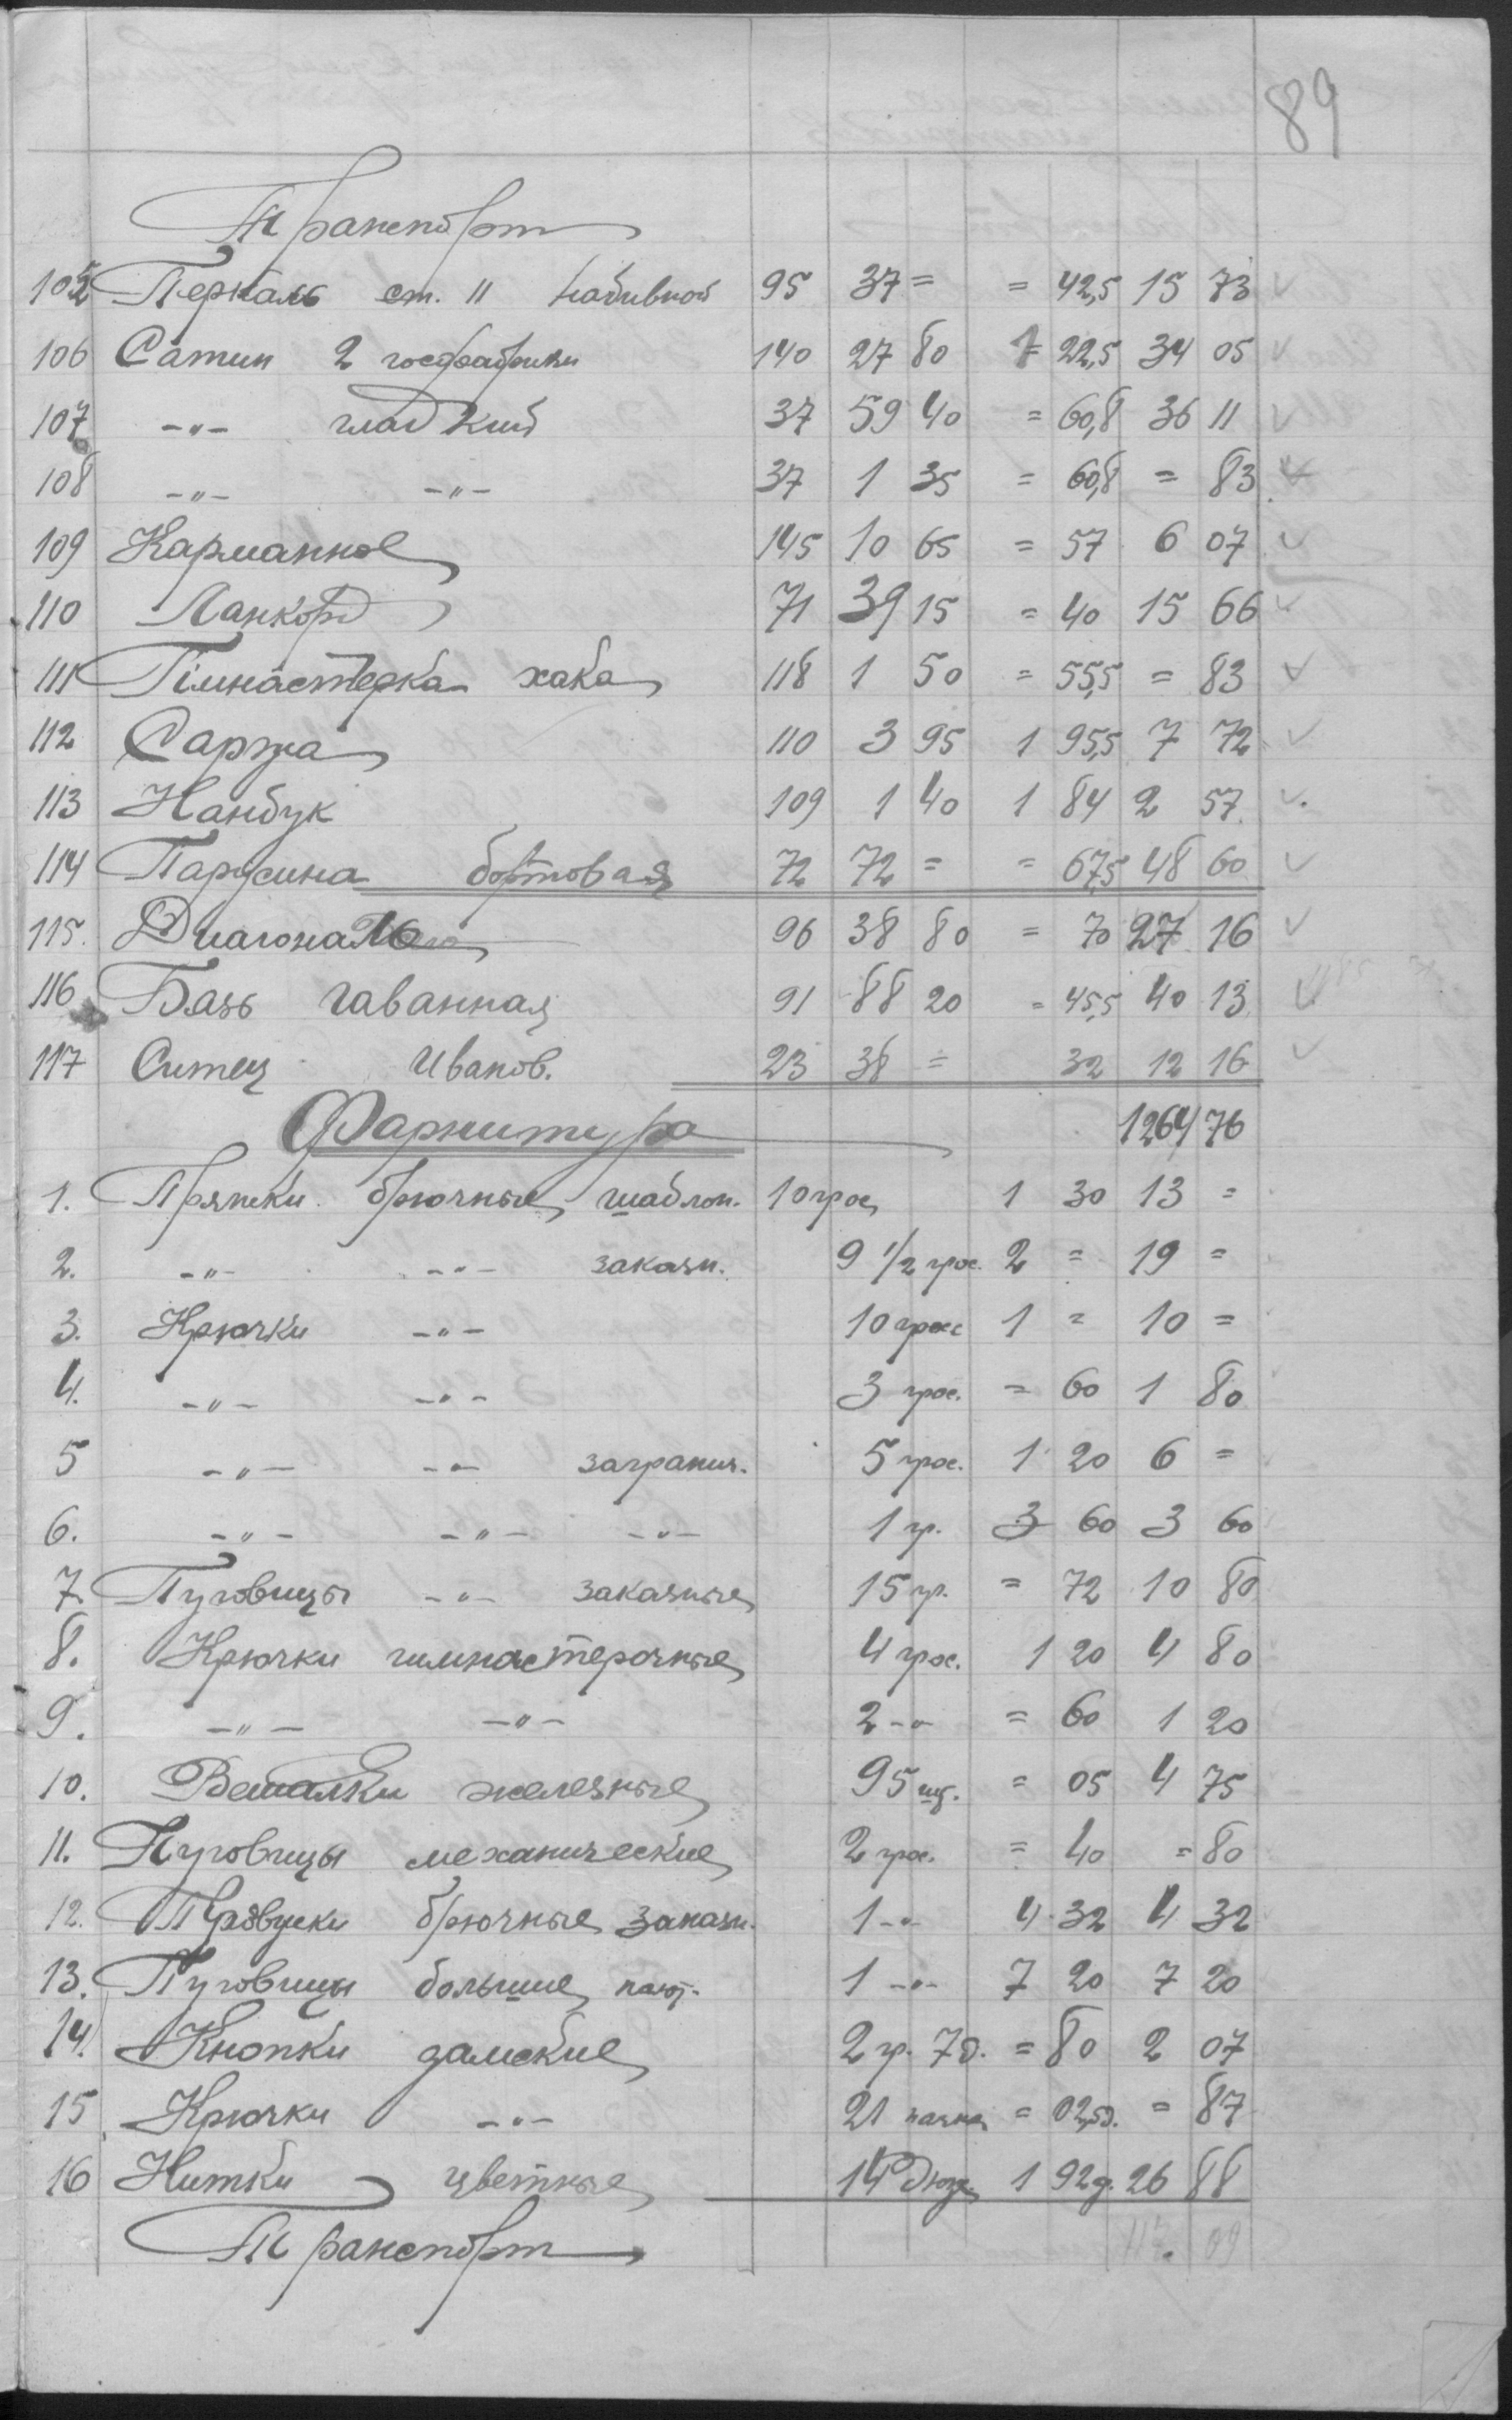 89
Транспорт
105 Перкаль ст. 11 набивной 95 37 = = 42,5 15 73
106 Сатин 2 госфабрики 140 27 80 1 22,5 34 05
107 -"- гладкий 37 59 40 = 60,8 36 11
108 -"- -"- 37 1 35 = 60,8 = 83
109 Карманное 145 10 65 = 57 6 07
110 Ланкорд 71 39 15 = 40 15 66
111 Гімнастерка хаки 118 1 50 = 55,5 = 83
112 Саржа 110 3 95 1 95,5 7 72
113 Нанбук 109 1 40 1 84 2 57
114 Парусина бортовая 72 72 = = 67,5 48 60
115. Диагональ 96 38 80 = 70 27 16
116 Бязь гаванная 91 88 20 = 45,5 40 13
117 Ситец Иванов. 23 38 = 32 12 16
Фарнитура 1264 76
1. Пряжки брючные шаблон. 10 грос 1 30 13 =
2. -"- -"- заказн. 9 1/2 грос. 2 = 19 =
3. Крючки -"- 10 грос 1 = 10 =
4. -"- -"- 3 грос. = 60 1 80
5 -"- -"- загранич. 5 грос. 1 20 6 =
6. -"- -"- -"- 1 гр. 3 60 3 60
7. Пуговицы -"- заказные 15 гр. = 72 10 80
8. Крючки гимнастерочные 4 грос. 1 20 4 80
9. -"- -"- 2 -"- = 60 1 20
10. Вешалки железные 95 шт. = 05 4 75
11. Пуговицы механические 2 грос. = 40 = 80
12. брючные заказн. 1 -"- 4 32 4 32
13. Пуговицы большие 1 -"- 7 20 7 20
14. Кнопки дамские 2 гр. 7 д. = 80 2 07
15 Крючки -"- 21 пачка = 02,5 = 87
16 Нитки цветные 14 дюж. 1 92 д. 26 88
Транспорт 117. 09